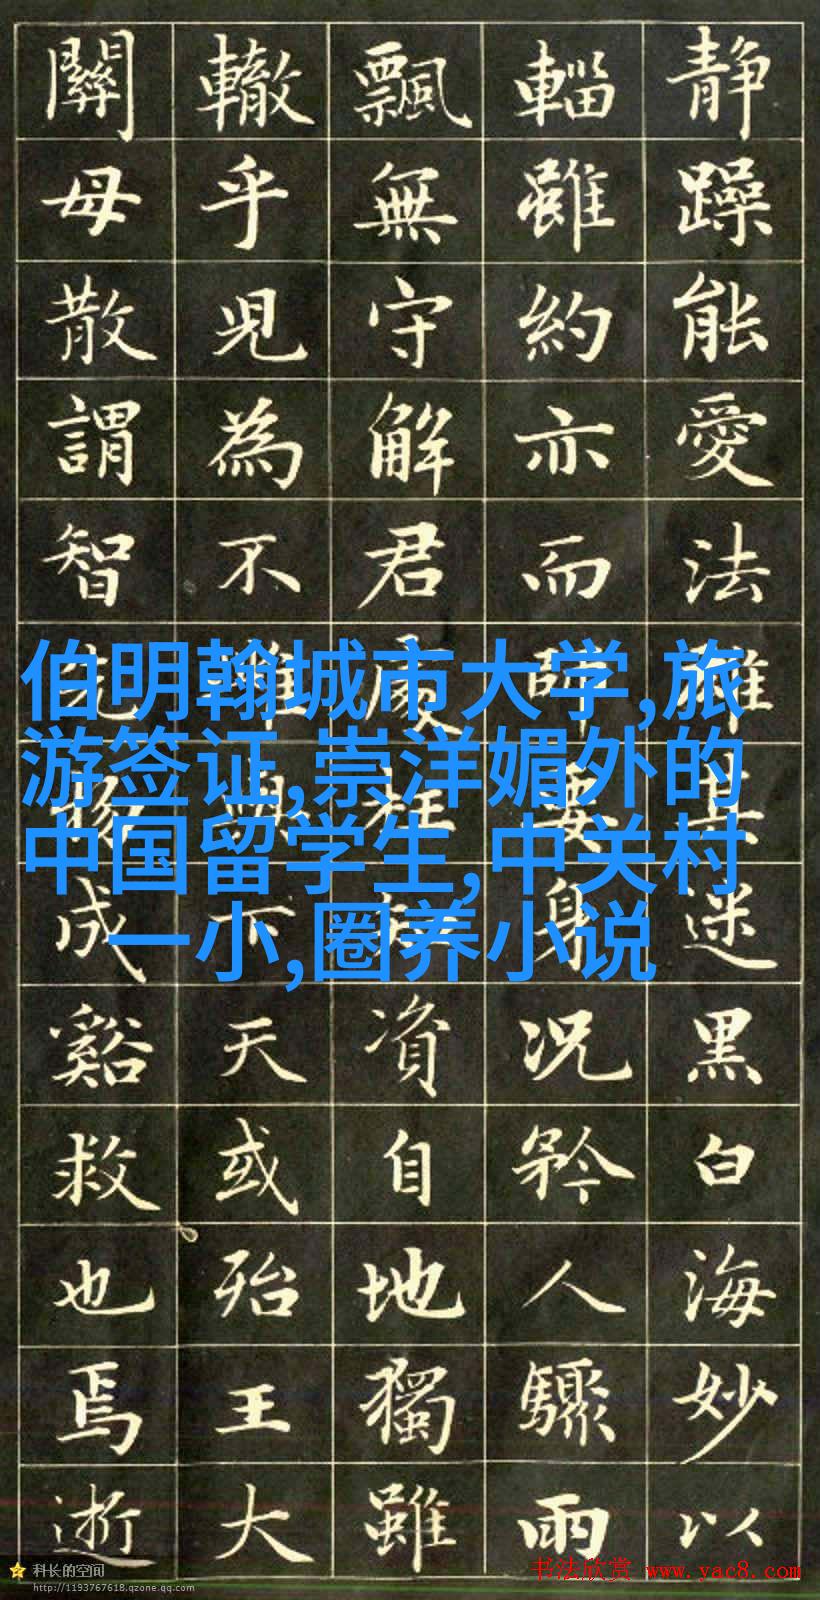 關轍飄輜静
母乎無雖躁
散見守約能
謂為解亦愛
智不君而法
伯明翰城市大学,旅
游签证,崇洋媚外的
中国留学生,中关村
一小,圈养小说
成下身迷
谿天資况黑
救或自矜白
也殆地人海
焉王獨驟妙
逝大雖雨以
科长的空间
http://1193767618.qzone.qq.com
书法欣赏 www.yac8.com